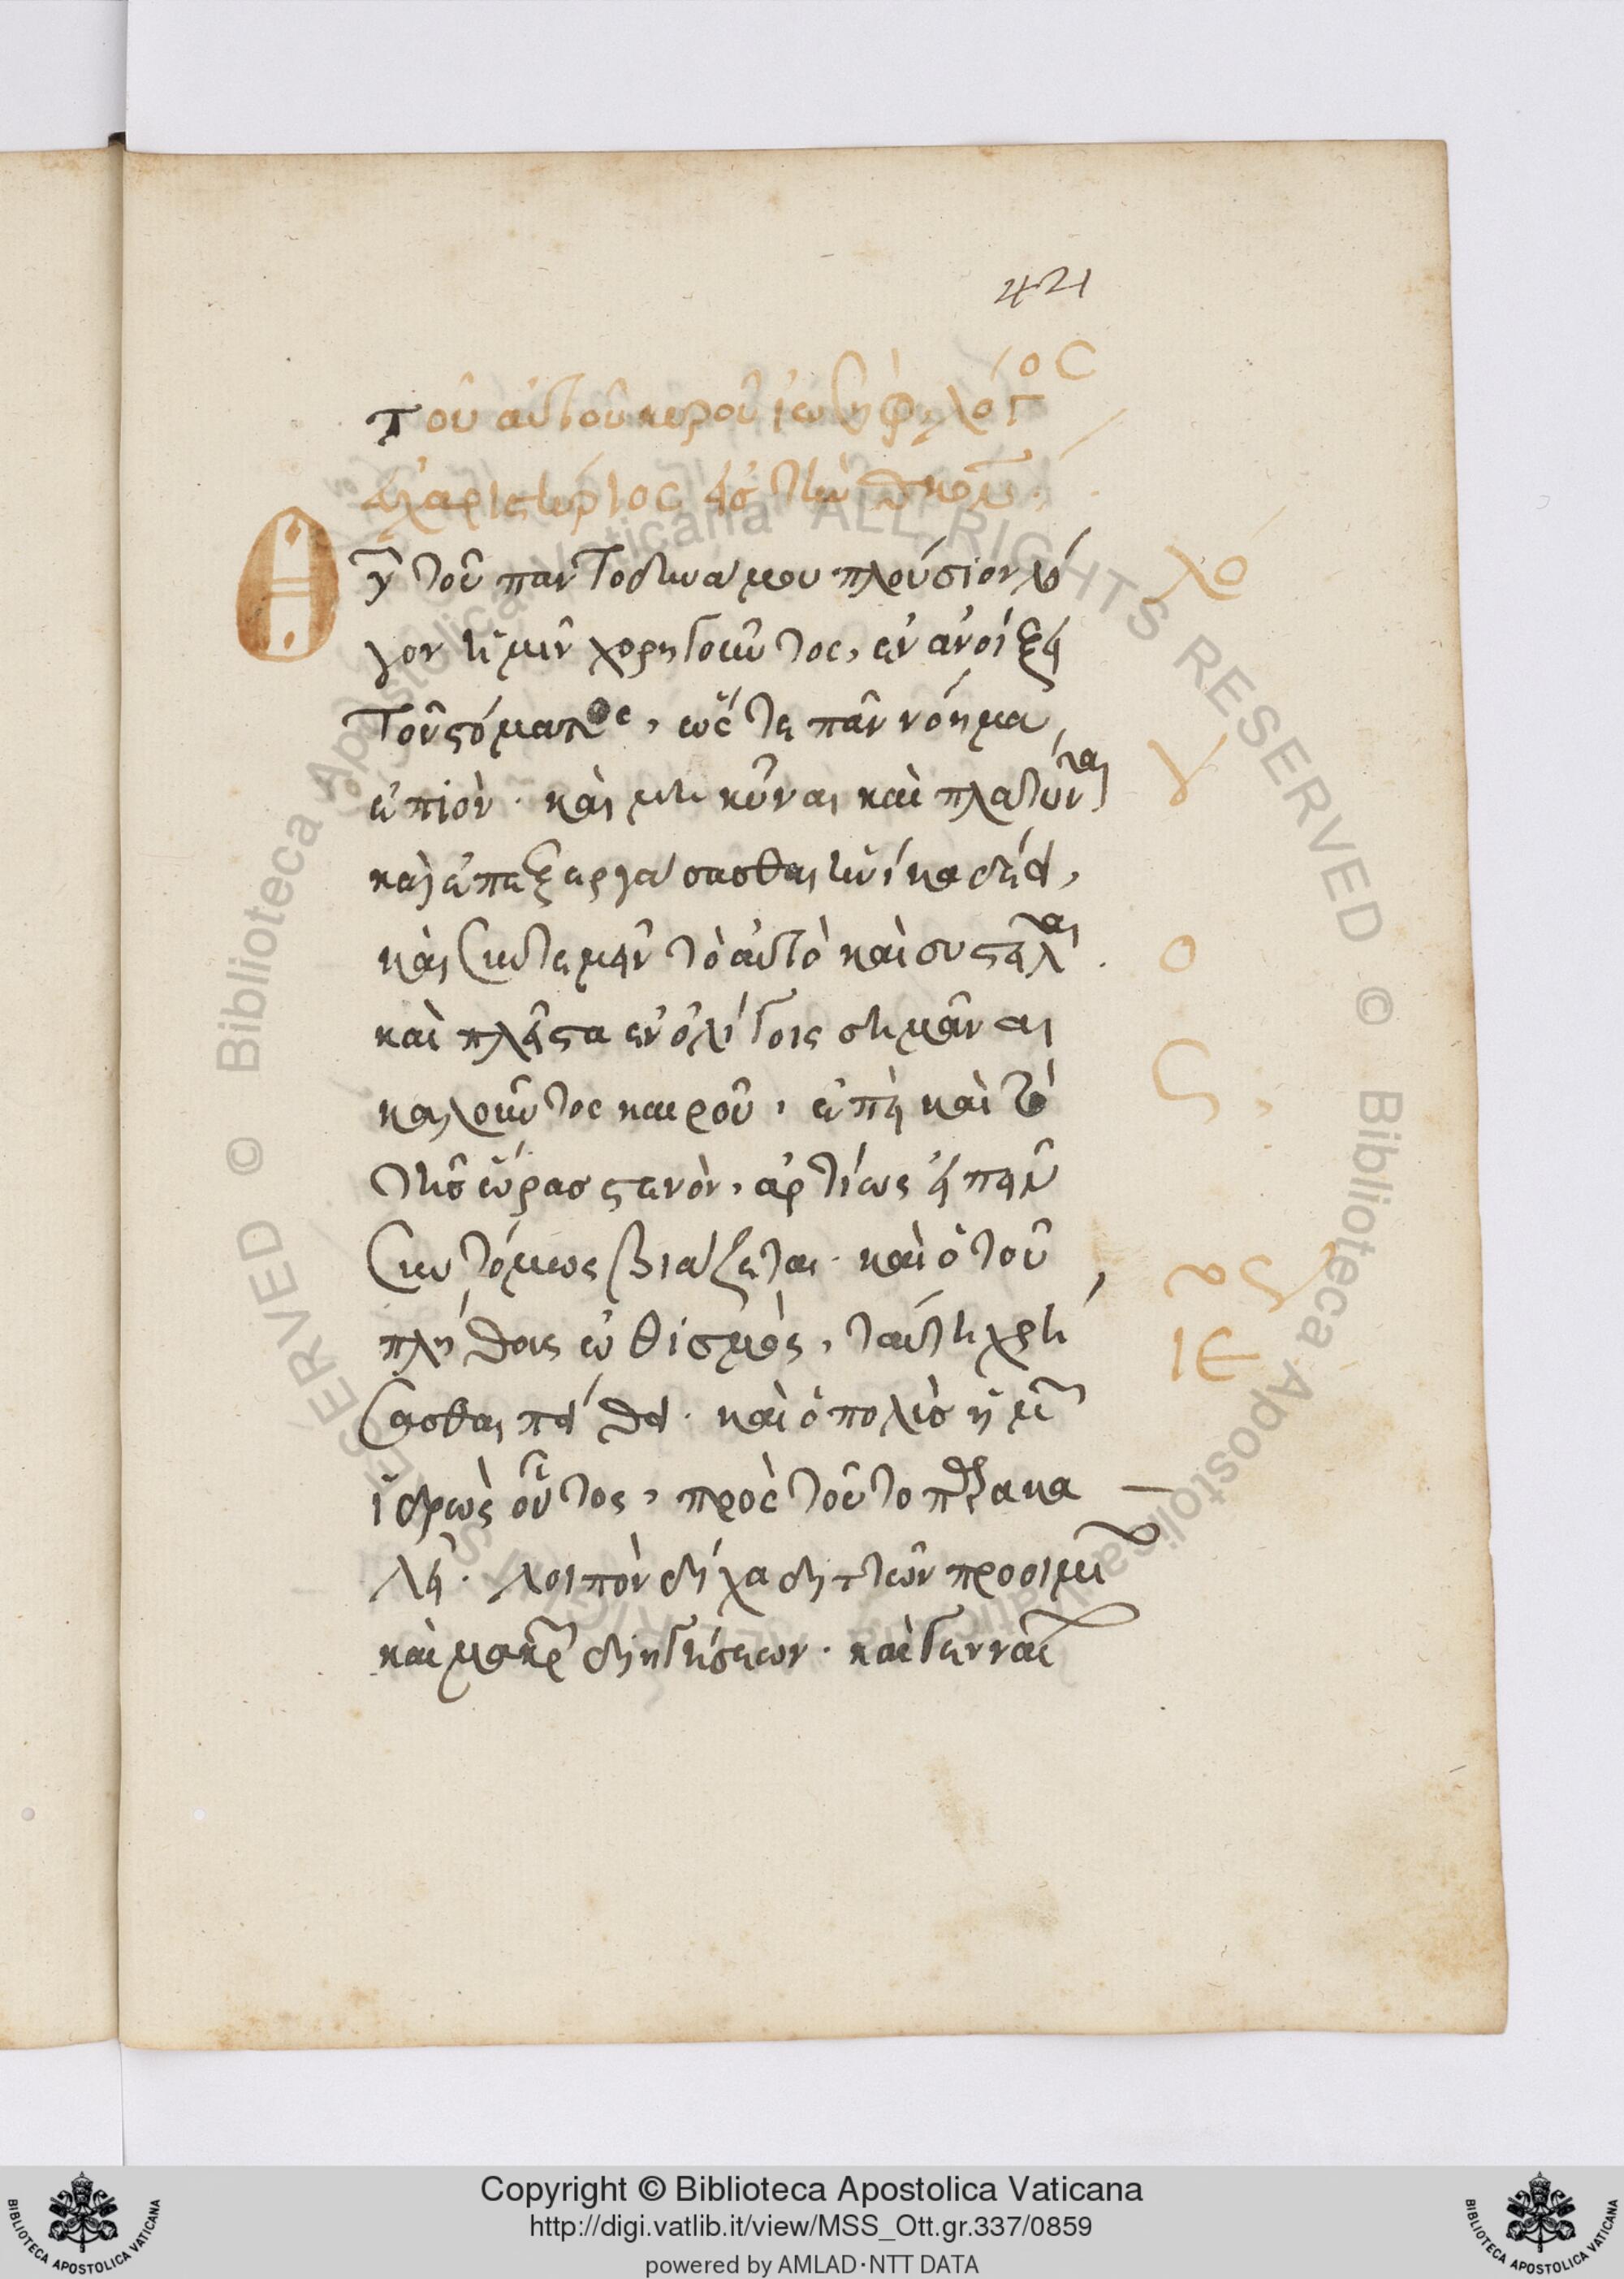 421
τοῦ αὐτοῦ κυροῦ ἰωσὴφ λόγος
εὐχαριστήριος εἰς τὴν θκον
Θυ τοῦ παντοδυνάμου πλούσιον λό
γον ἡμῖν χορηγοῦντος, ἐν ἀνοίξει
τοῦ στόματος, ὥστε πᾶν νόημα
καὶ μηκῦναι καὶ πλατῦναι
καὶ ἐπεξεργάσασθαι
καὶ συντεμεῖν τὸ αὐτὸ καὶ συστεῖλαι
καὶ πλεῖστα ἐν ὀλίγοις σημᾶναι
καλοῦντος καιροῦ, ἐπεὶ καὶ τὸ
τῆς ὥρας στενὸν, ἀρτίως εἰπεῖν
συντόμως βιάζεται. καὶ ὁ τοῦ
πλήθους ὠθισμὸς, ταύτη χρή
σασθαι πείθει. καὶ ὁ πολὺς ἡμῖν
ἱδρὼς οὗτος, πρὸς τοῦτο παρακα
λεῖ. λοιπὸν δίχα δὴ τῶν προοιμίων
καὶ μακρῶν διηγήσεων. καὶ γεννᾶται
λό
γ
ο
ς
ος
ιε
Copyright © Biblioteca Apostolica Vaticana
http://digi.vatlib.it/view/MSS_Ott.gr.337/0859
powered by AMLAD·NTT DATA
BIBLIOTECA APOSTOLICA VATICANA
BIBLIOTECA APOSTOLICA VATICANA
© Biblioteca Apostolica Vaticana ALL RIGHTS RESERVED
© Biblioteca Apostolica Vaticana ALL RIGHTS RESERVED